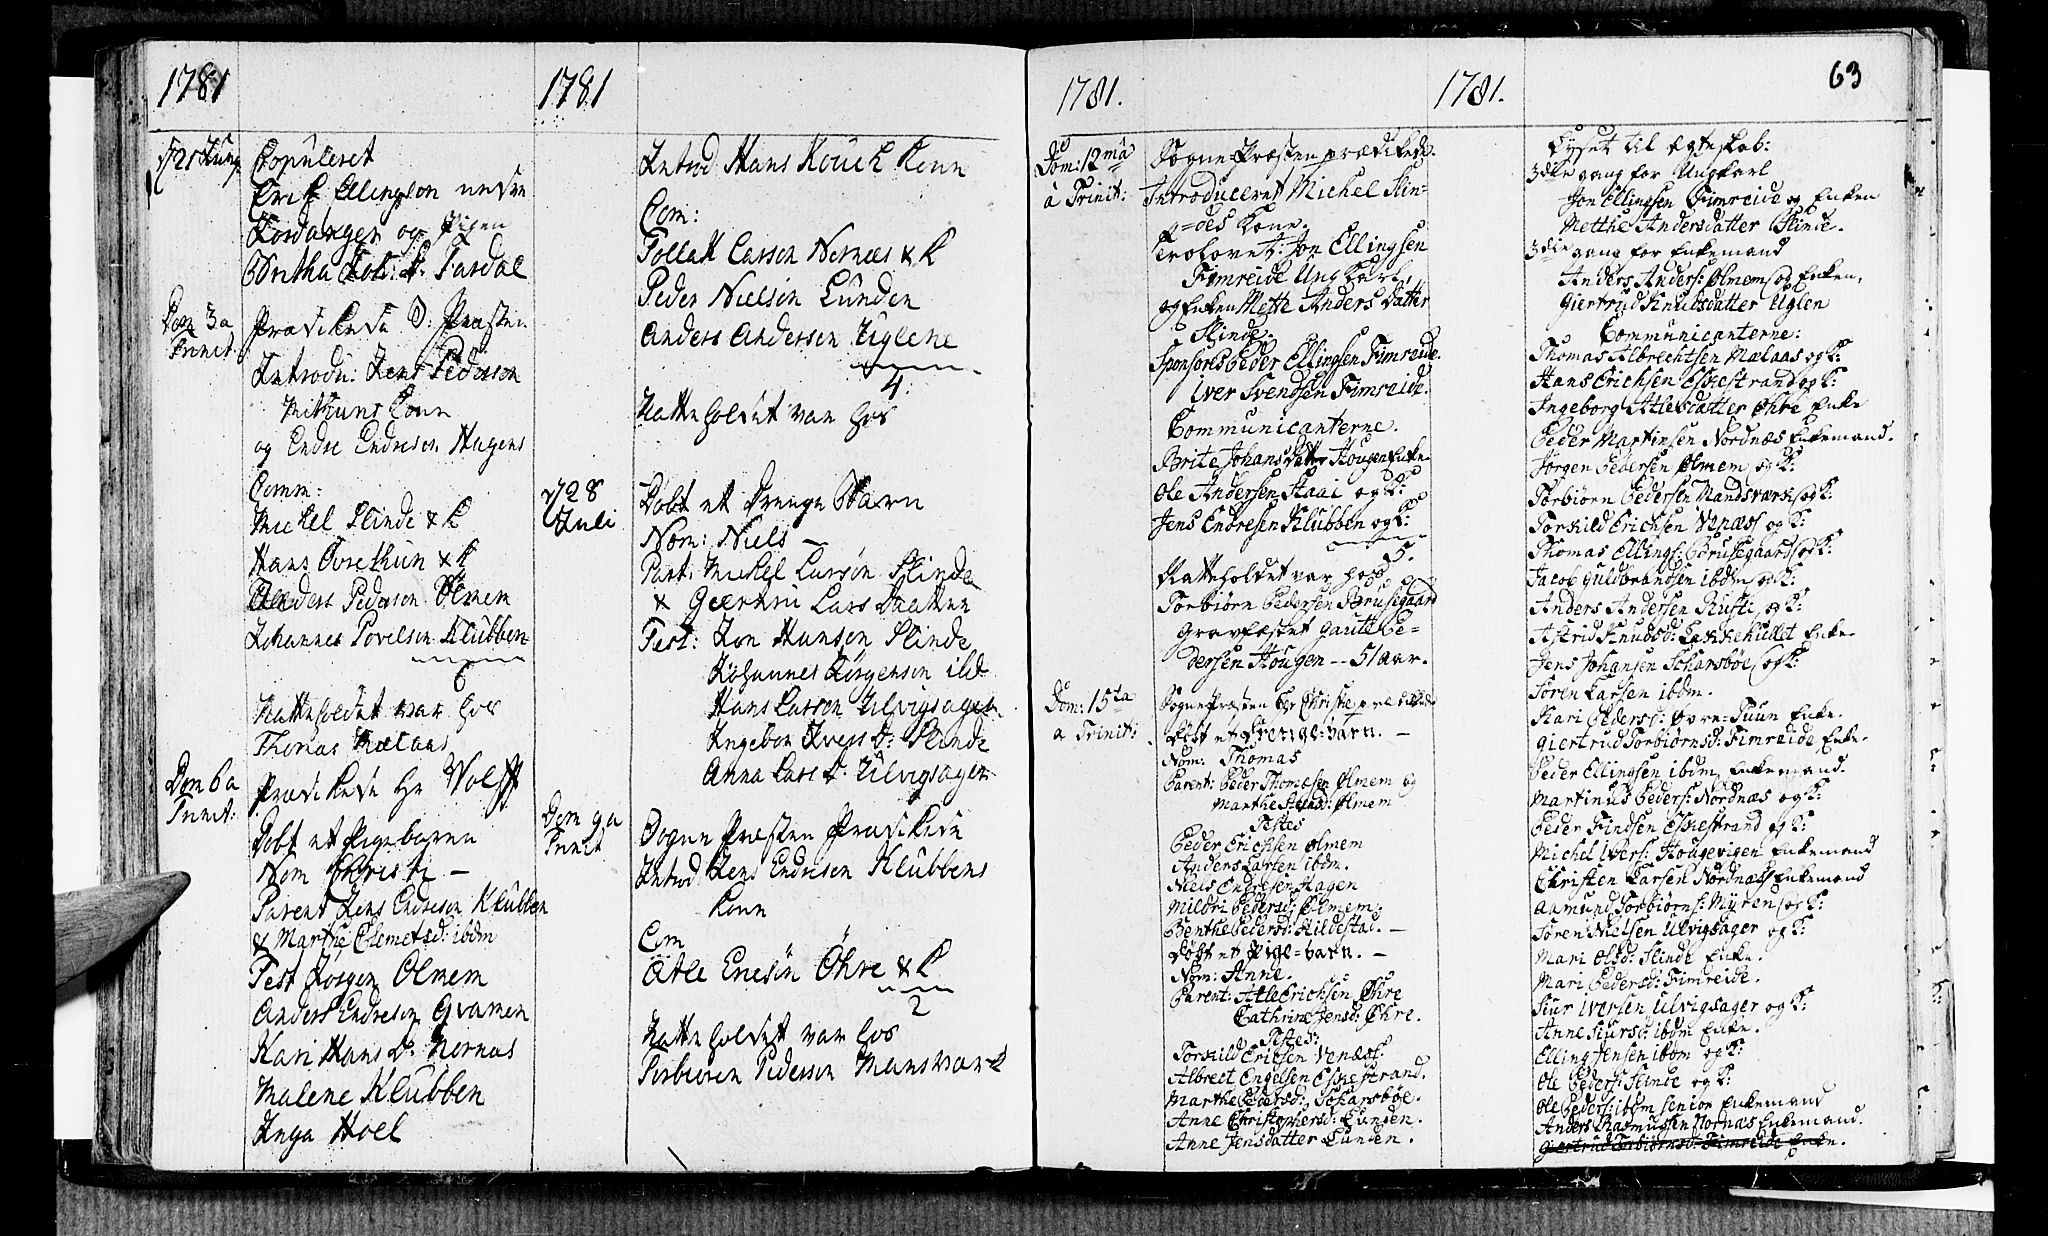 1781
d 21 Jung
Copuleret
Erik Ellingson nedre
Hordanger og Pigen
Britha Joh: D. Tardal
Dom 3a
Trinit.
Prædikede S: Præsten
Introdu: Jens Pederson
Mithuns Kone
og Endre Endreson Hagens
Comm:
Mickel Slinde & K
Hans Øvrethun & K
Anders Pederson Ølmem
Johannes Povelson Klubben
6
Natteholdet var hos
Thomas Mælaas
Dom 6a
Trinit:
Prædikede Hr Wolff
Døbt et Pigebarn
Nom Christi –
Parent Jens Endreson Klubben
& Marthe Clemetsd: ibdm
Test Jørgen Ølmem
Anders Endreson Qvamen
Kari Hans D. Nornæs
Malene Klubben
Inga Hoel
1781
Introd Hans Kouch Kone
Com:
Tollak Larson Nornæs & K
Peder Nielson Lunden
Anders Anderson Uglene
4.
Natteholdet var hos
d 28
Juli
Døbt et Drenge Barn
Nom: Niels –
Part. Mickel Larson Slinde
& Giertru Lars Daatter
Test: Jon Hanson Slinde
Johannes Jørgenson ibd
Hans Larson Ulvigsager
Ingebor Ivers D: Slinde
Anna Lars D. Ulvigsager
Dom 9a
Trinit
Sogne Præsten Prædikede
Introd Jens Endreson Klubbens
Kone
Com
Atle Ericson Öhre & K
2
Natteholdet var hos
Torbiøren Pederson Mansvark
1781.
Dom: 12ma
a Trinit:
Sogne-Præsten prædikede.
Introduceret Michel Slin=
=des Kone.
Trolovet: Jon Ellingsen
Fimreide Ung Karl,
og Enken Mette Anders Datter
Slinde.
Sponsores Peder Ellingsen Fimreide.
Iver Svendsen Fimreide.
Communicanterne.
Brite Johans Datter Hougen Enke
Ole Andersen Haai og K:
Jens Endresen Klubben og K:
5.
Natteholdet var hos
Torbiørn Pedersen Brusegaard
Gravfæstet Gaute Pe=
dersen Hougen -- 51 aar.
Dom: 15ta
a Trinit:
Sognepræsten hr Christie prædikede
Døbt et Drenge=barn. –
Nom: Thomas
Parent: Peder Thomesen Ølmem og
Marthe Ølmem
Testes
Peder Erichsen Ølmem
Anders Larsen ibdm.
Niels Endresen Hagen
Mildri Pedersd: Ølmem.
Benthe Pedersd: Hildestad. –
Døbt et Pige=barn. –
Nom: Anne.
Parent: Atle Erichsen Øhre
Cathrine Jensd: Øhre.
Testes:
Torkild Ericsen Venæs.
Albrect Engelsen Eskestrand.
Marthe Pedersd: Scharsbøe.
Anne Christophersd: Lunden.
Anne Jensdatter Lunden.
1781.
63
Lyset til Egteskab:
3die gang for Ungkarl
Jon Ellingsen Fimreide og Enken
Metthe Andersdatter Slinde.
3die gang for Enkemand
Anders Anders: Ølmem og Enken,
Giertrud Knudsdatter Uglen
Communicanterne:
Thomas Albrechtsen Mælaas og K:
Hans Erichsen Eskestrand og K:
Ingeborg Atlesdatter Øhre Enke
Peder Martinsen Nordnæs Enkemand.
Jørgen Pedersen Ølmem og K:
Torbiørn Pedersen Mandsværk og K:
Torkild Erichsen Venæs og K:
Thomas Ellings: Brusegaard og K:
Jacob Guldbrandsen ibdm og K:
Anders Andersen Rusti og K:
Astrid Knudsd: Enke.
Jens Johansen Scharsbøe og K:
Søren Larsen ibdm.
Kari Pedersd: Øvre=Tuun Enke.
Giertrud Torbiørnsd: Fimreide Enke.
Peder Ellingsen ibdm Enkemand.
Martinus Peders: Nordnæs og K:
Peder Findsen Eskestrand og K:
Michel Ivers: Hougevigen Enkemand
Christen Larsen Nordnæs Enkemand
Aamund Torbiørns: Myren og K:
Søren Nielsen Ulvigsager og K:
Mari Olsd: Slinde Enke.
Mari Pedersd: Fimreide.
Siur Iversen Ulvigsager og K:
Anne Siursd: ibdm Enke.
Elling Jensen ibdm og K:
Ole Peders: Slinde og K:
Ole Peders: ibdm senior Enkemand
Anders Rasmussen Nornæs Enkemand.
Giertrud Torbiørnsd: Fimreide Enke.